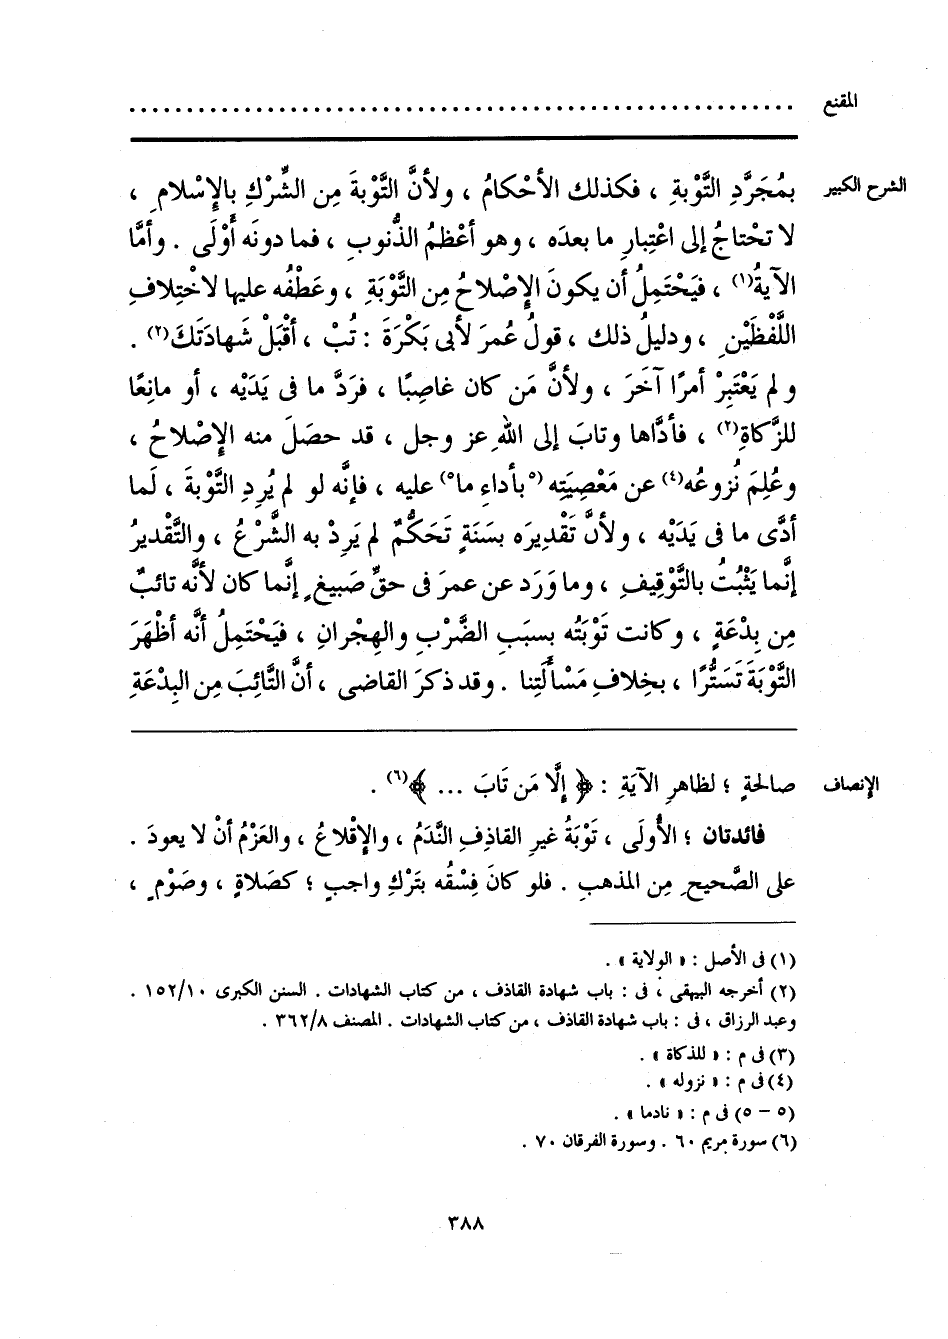 المقنع ............................................................
الشرح الكبير بمُجَرَّدِ التَّوْبةِ ، فكذلك الأحْكامُ ، ولأنَّ التَّوْبةَ مِن الشِّرْكِ بالإِسْلامِ ،
لا تحْتاجُ إلى اعْتِبارِ ما بعدَه ، وهو أعْظمُ الذُّنوبِ ، فما دونَه أَوْلَى . وأمَّا
الآيةُ(١) ، فيَحْتَمِلُ أن يكونَ الإِصْلاحُ مِن التَّوْبَةِ ، وعَطْفُه عليها لاخْتِلافِ
اللَّفْظَيْنِ ، ودليلُ ذلك ، قولُ عُمرَ لأبى بَكْرَةَ : تُبْ ، أقْبَلْ شَهادَتَكَ(٢) .
ولم يَعْتَبِرْ أمرًا آخَرَ ، ولأنَّ مَن كان غاصِبًا ، فرَدَّ ما فى يَدَيْه ، أو مانِعًا
للزَّكاةِ(٣) ، فأدَّاها وتابَ إلى اللهِ عز وجل ، قد حصَلَ منه الإِصْلاحُ ،
وعُلِمَ نُزوعُه(٤) عن مَعْصِيَتِه (٥بأداءِ ما٥) عليه ، فإنَّه لو لم يُرِدِ التَّوْبةَ ، لَما
أدَّى ما فى يَدَيْه ، ولأنَّ تَقْديرَه بسَنَةٍ تَحَكُّمٌ لم يَرِدْ به الشَّرْعُ ، والتَّقْديرُ
إنَّما يَثْبُتُ بالتَّوْقيفِ ، وما وَرَد عن عمرَ فى حقِّ صَبيغٍ إنَّما كان لأنَّه تائبٌ
مِن بِدْعَةٍ ، وكانت تَوْبَتُه بسبَبِ الضَّرْبِ والهِجْرانِ ، فيَحْتَمِلُ أنَّه أظْهَرَ
التَّوْبَةَ تَسَتُّرًا ، بخِلافِ مَسْألَتِنا . وقد ذكرَ القاضى ، أنَّ التَّائِبَ مِن البِدْعَةِ
الإنصاف صالحةٍ ؛ لظاهرِ الآيَةِ : ﴿ إِلَّا مَن تَابَ ... ﴾(٦) .
فائدتان ؛ الأُولَى ، تَوْبَةُ غيرِ القاذفِ النَّدَمُ ، والإِقْلاعُ ، والعَزْمُ أنْ لا يعودَ .
على الصَّحيحِ مِن المذهبِ . فلو كانَ فِسْقُه بتَرْكِ واجبٍ ؛ كصَلاةٍ ، وصَوْمٍ ،
(١) فى الأصل : « الولاية » .
(٢) أخرجه البيهقى ، فى : باب شهادة القاذف ، من كتاب الشهادات . السنن الكبرى ١٥٢/١٠ .
وعبد الرزاق ، فى : باب شهادة القاذف ، من كتاب الشهادات . المصنف ٣٦٢/٨ .
(٣) فى م : « للذكاة » .
(٤) فى م : « نزوله » .
(٥ - ٥) فى م : « نادما » .
(٦) سورة مريم ٦٠ . وسورة الفرقان ٧٠ .
٣٨٨